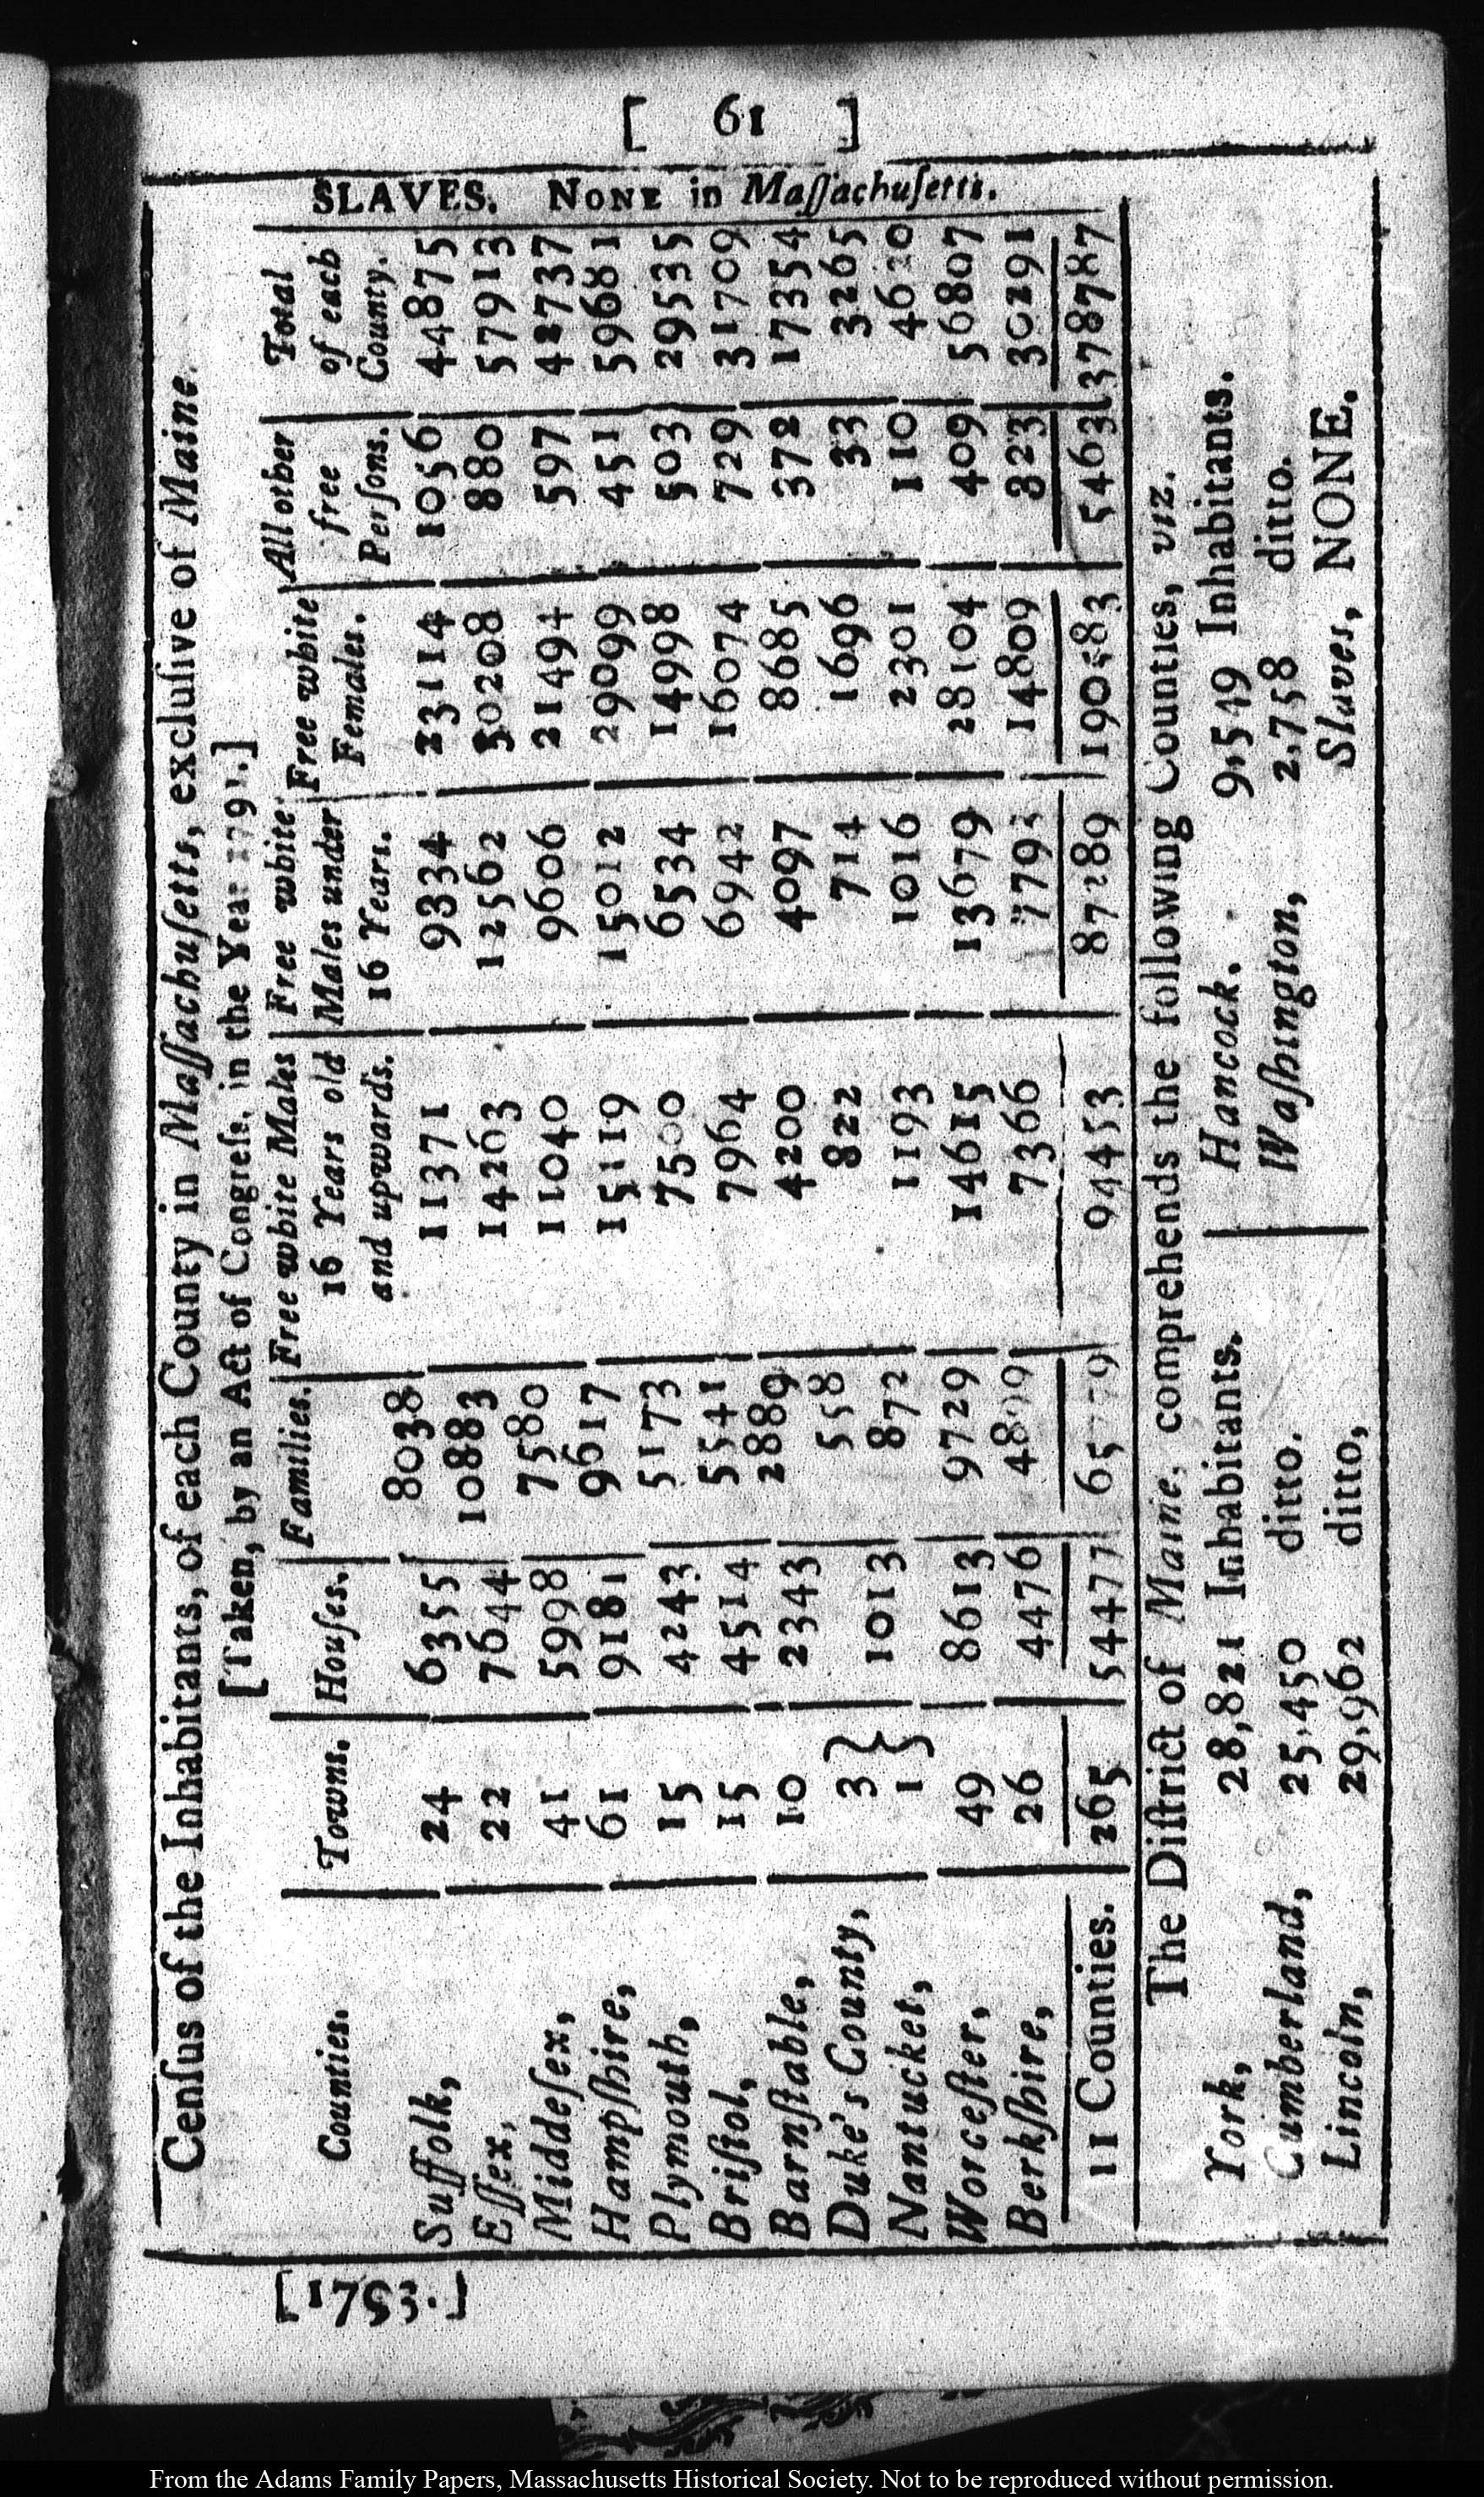 [ 61 ]
Cenſus of the Inhabitants, of each County in Maſſachuſetts, excluſive of Maine.
[Taken, by an Act of Congreſs, in the Year 1791.]
Counties. Towns. Houſes. Families. Free white Males 16 Years old and upwards. Free white Males under 16 Years. Free white Females. All other free Perſons. Total of each County. SLAVES. NONE in Maſſachuſetts.
Suffolk, 24 6355 8038 11371 9334 23114 1056 44875
Eſſex, 22 7644 10883 14263 12562 30208 880 57913
Middeſex, 41 5998 7580 11040 9606 21494 597 42737
Hampſhire, 61 9181 9617 15119 15012 29099 451 59681
Plymouth, 15 4243 5173 7500 6534 14998 503 29535
Briſtol, 15 4514 5541 7964 6942 16074 729 31709
Barnſtable, 10 2343 2889 4200 4097 8685 372 17354
Duke's County, 3 } 558 822 714 1696 33 3265
Nantucket, 1 } 1013 872 1193 1016 2301 110 4620
Worceſter, 49 8613 9729 14615 13679 28104 409 56807
Berkſhire, 26 4476 7366 14809 323 30291
11 Counties. 265 54477 94453 87289 5463 378787
The Diſtrict of Maine, comprehends the following Counties, viz.
York, 28,821 Inhabitants. Hancock. 9,549 Inhabitants.
Cumberland, 25,450 ditto. Waſhington, 2,758 ditto.
Lincoln, 29,962 ditto, Slaves, NONE.
[1793.]
From the Adams Family Papers, Massachusetts Historical Society. Not to be reproduced without permission.